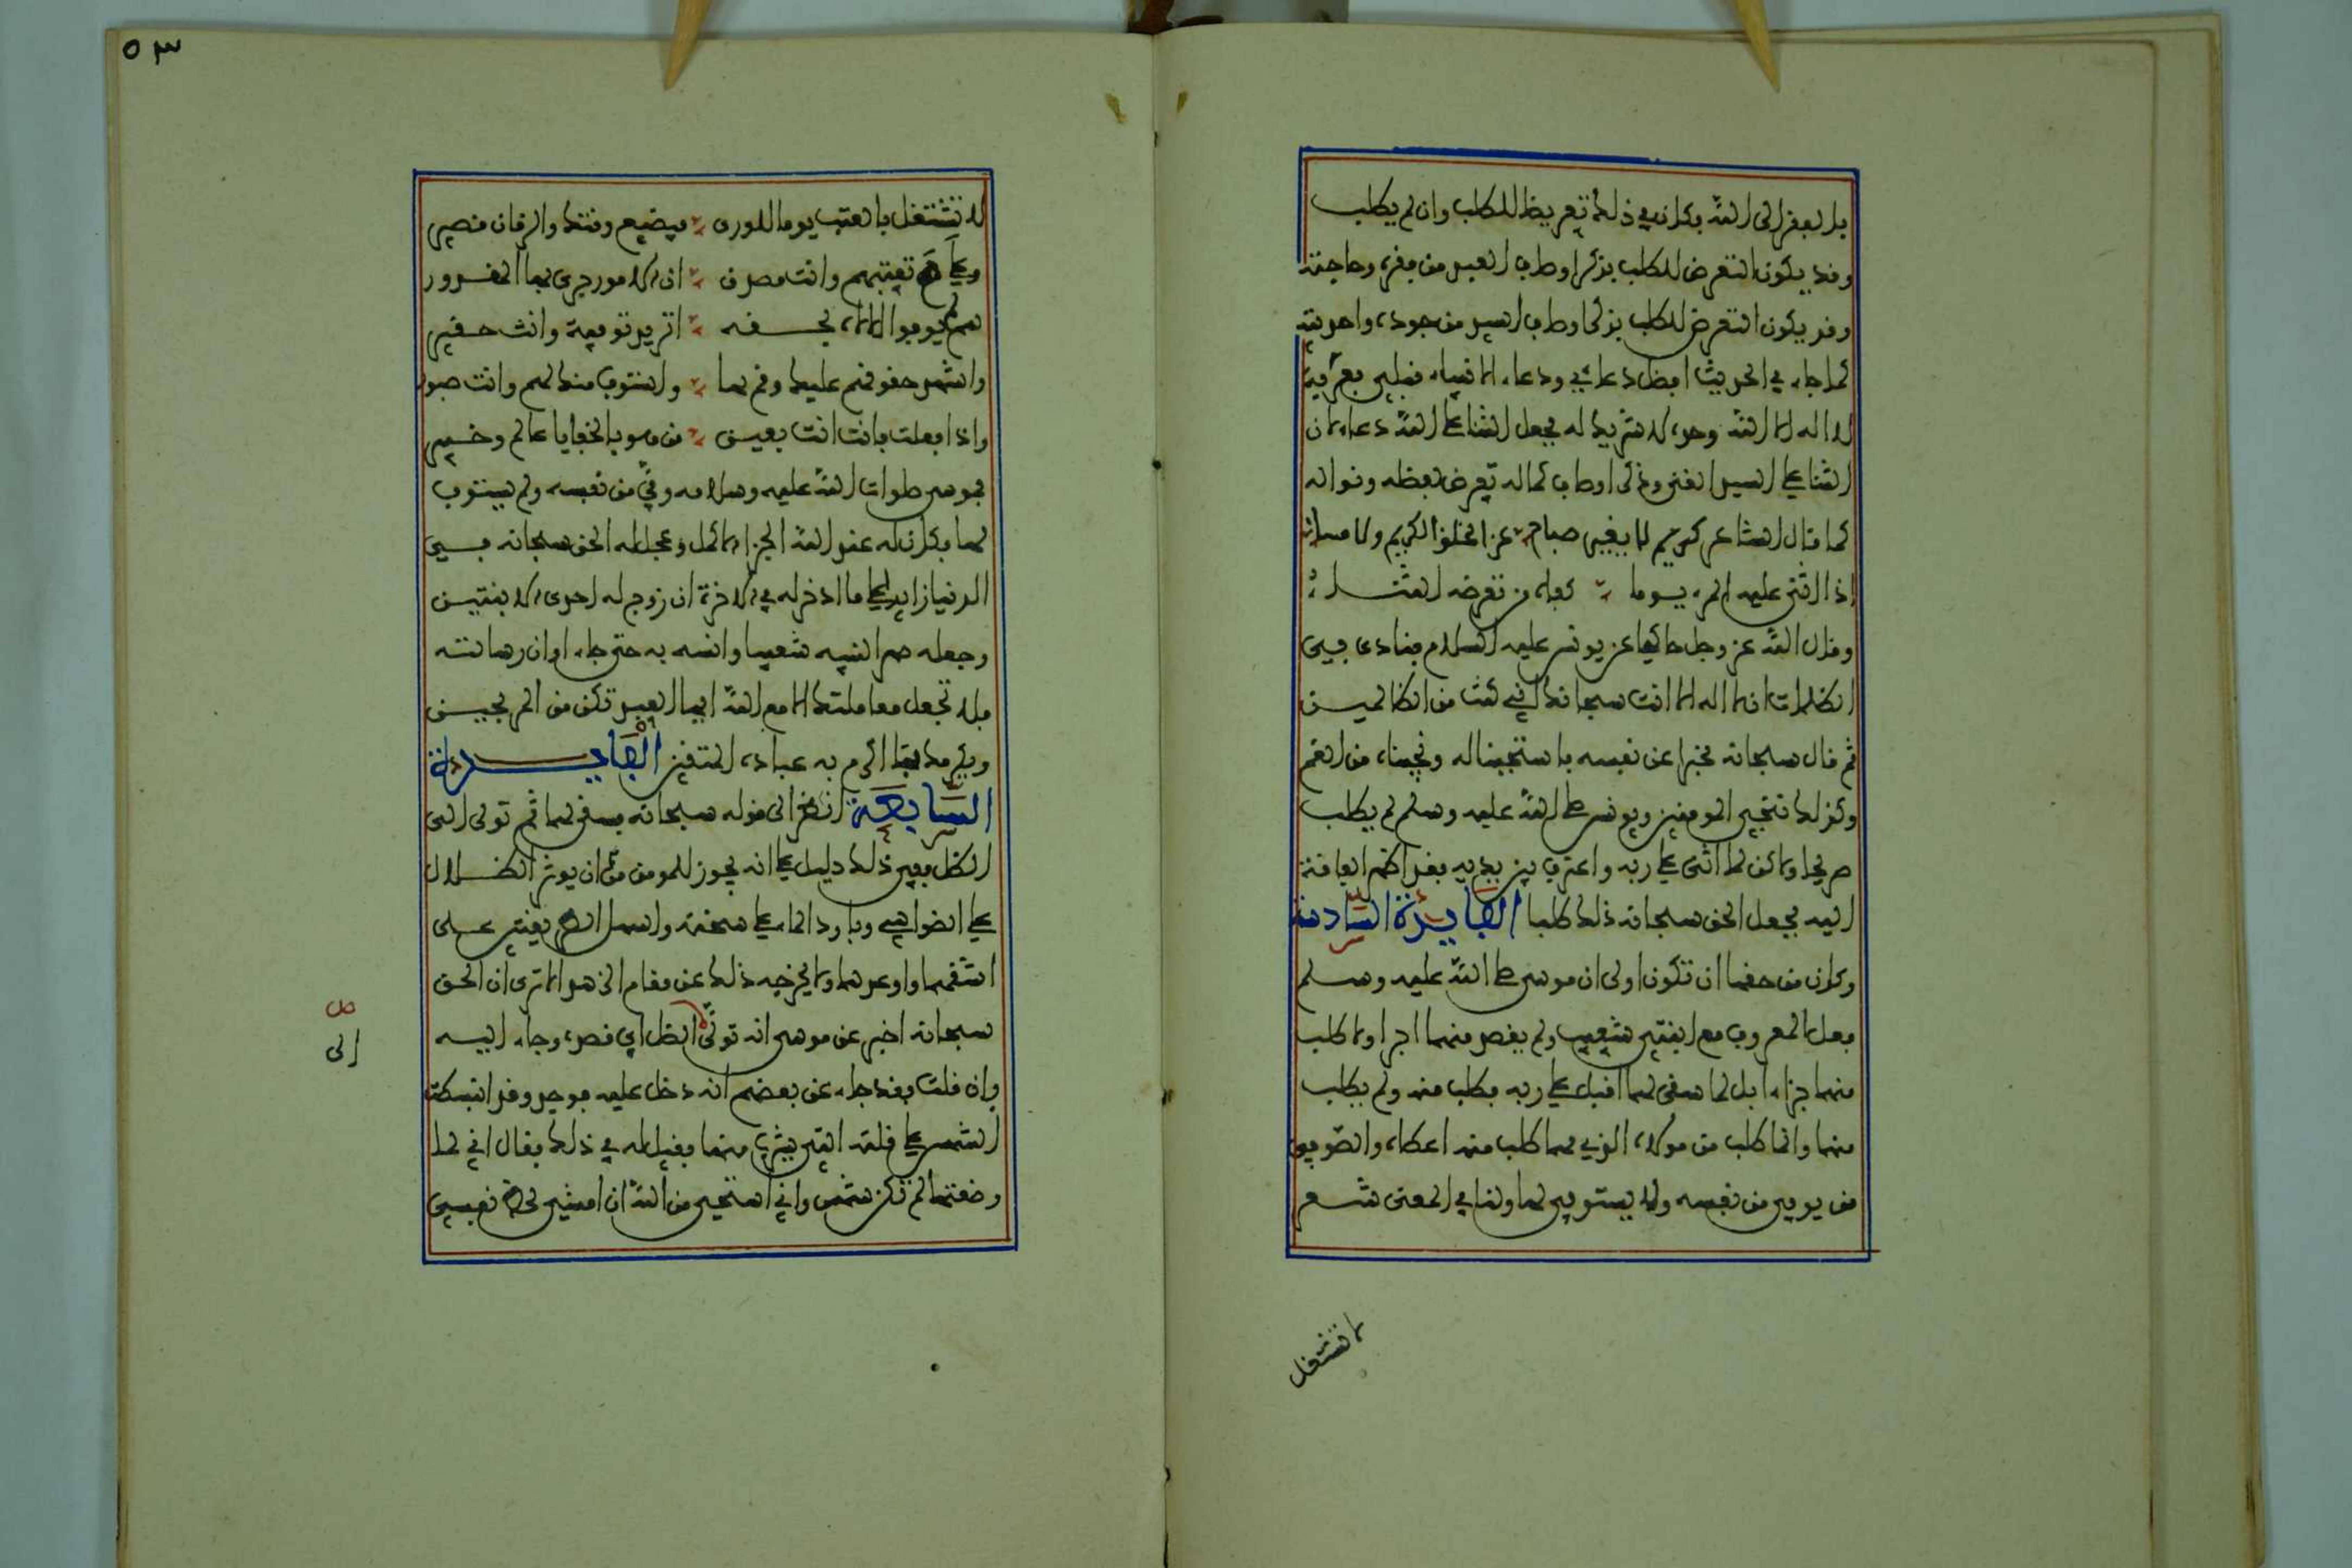 بل لفقره الى الله فكان في ذلك تعريضا للطلب وان لم يطلب
وقد يكون التعرض للطلب بذكر اوصاف العبد من فقره وحاجته
وقد يكون التعرض للطلب بذكر اوصاف السيد من جوده واحديته
كما جاء في الحديث افضل دعائي ودعاء الانبياء قبلي بعرفة
لا اله الا الله وحده لا شريك له فجعل الثنا على الله دعاء لان
الثنا على السيد الغني وذكر اوصاف كماله تعرض لفضله ونواله
كما قال الشاعر كريم لا يغيره صباح عن الخلق الكريم ولا مساء
اذا اثنى عليه المرء يوما كفاه من تعرضه الثناء
وقال الله عز وجل حاكيا عن يونس عليه السلام فنادى في
الظلمات ان لا اله الا انت سبحانك اني كنت من الظالمين
ثم قال سبحانه مخبرا عن نفسه فاستجبنا له ونجيناه من الغم
وكذلك ننجي المومنين ويونس صلى الله عليه وسلم لم يطلب
صريحا ولاكن لما اثنى على ربه واعترف بين يديه فقد اظهر الفاقة
اليه فجعل الحق سبحانه ذلك طلبا الفايدة السادسة
وكان من حقها ان تكون اولى ان موسى صلى الله عليه وسلم
فعل المعروف مع ابنتي شعيب ولم يقصد منهما اجرا ولا طلب
منهما جزاء بل لما سقى لهما اقبل على ربه فطلب منه ولم يطلب
منهما وانما طلب من مولاه الذي مهما طلب منه اعطاه والصوفي
من يوفي من نفسه ولا يستوفي لها ولنا في المعنى شعر
لا تشتغل
لا تشتغل بالعتب يوما للورى فيضيع وقتك والزمان قصير
وعلام تعتبهم وانت مصدق ان الامور جرى بها المقدور
هم لم يوفوا للاله بحقه اتريد توفية وانت حقير
واشهد حقوقهم عليك وقم بها واستوف منك لهم وانت صبور
واذا فعلت فانت انت بعين من هو بالخفايا عالم وخبير
فموسى صلوات الله عليه وسلامه وفى من نفسه ولم يستوف
لها فكان له عند الله الجزاء الاكمل وعجل له الحق سبحانه في
الدنيا زايدا على ما ادخر له في الاخرة ان زوج له احدى الابنتين
وجعله صهر النبيه شعيب وانسه به حتى جاء اوان رسالته
فلا تجعل معاملتك الا مع الله ايها العبد تكن من المربحين
ويكرمك بما اكرم به عباده المتقين الفايدة
السابعة انظر الى قوله سبحانه فسقى لهما ثم تولى الى
الظل ففي ذلك دليل على انه يجوز للمومن ان يوثر الظلال
على الضواحي وبارد الماء على سخنه واسهل الطريقين على
اشقهما واوعرهما ولا يخرجه ذلك عن مقام الزهد الا ترى ان الحق
سبحانه اخبر عن موسى انه تولى الظل اي قصده وجاء اليه
ص
الى
فان قلت فقد جاء عن بعضهم انه دخل عليه فوجد وقد انبسطت
الشمس على قلته التي يشرب منها فقيل له في ذلك فقال اني لما
وضعتها لم تكن شمس واني استحيي من الله ان امشي لحظ نفسي
٥٣